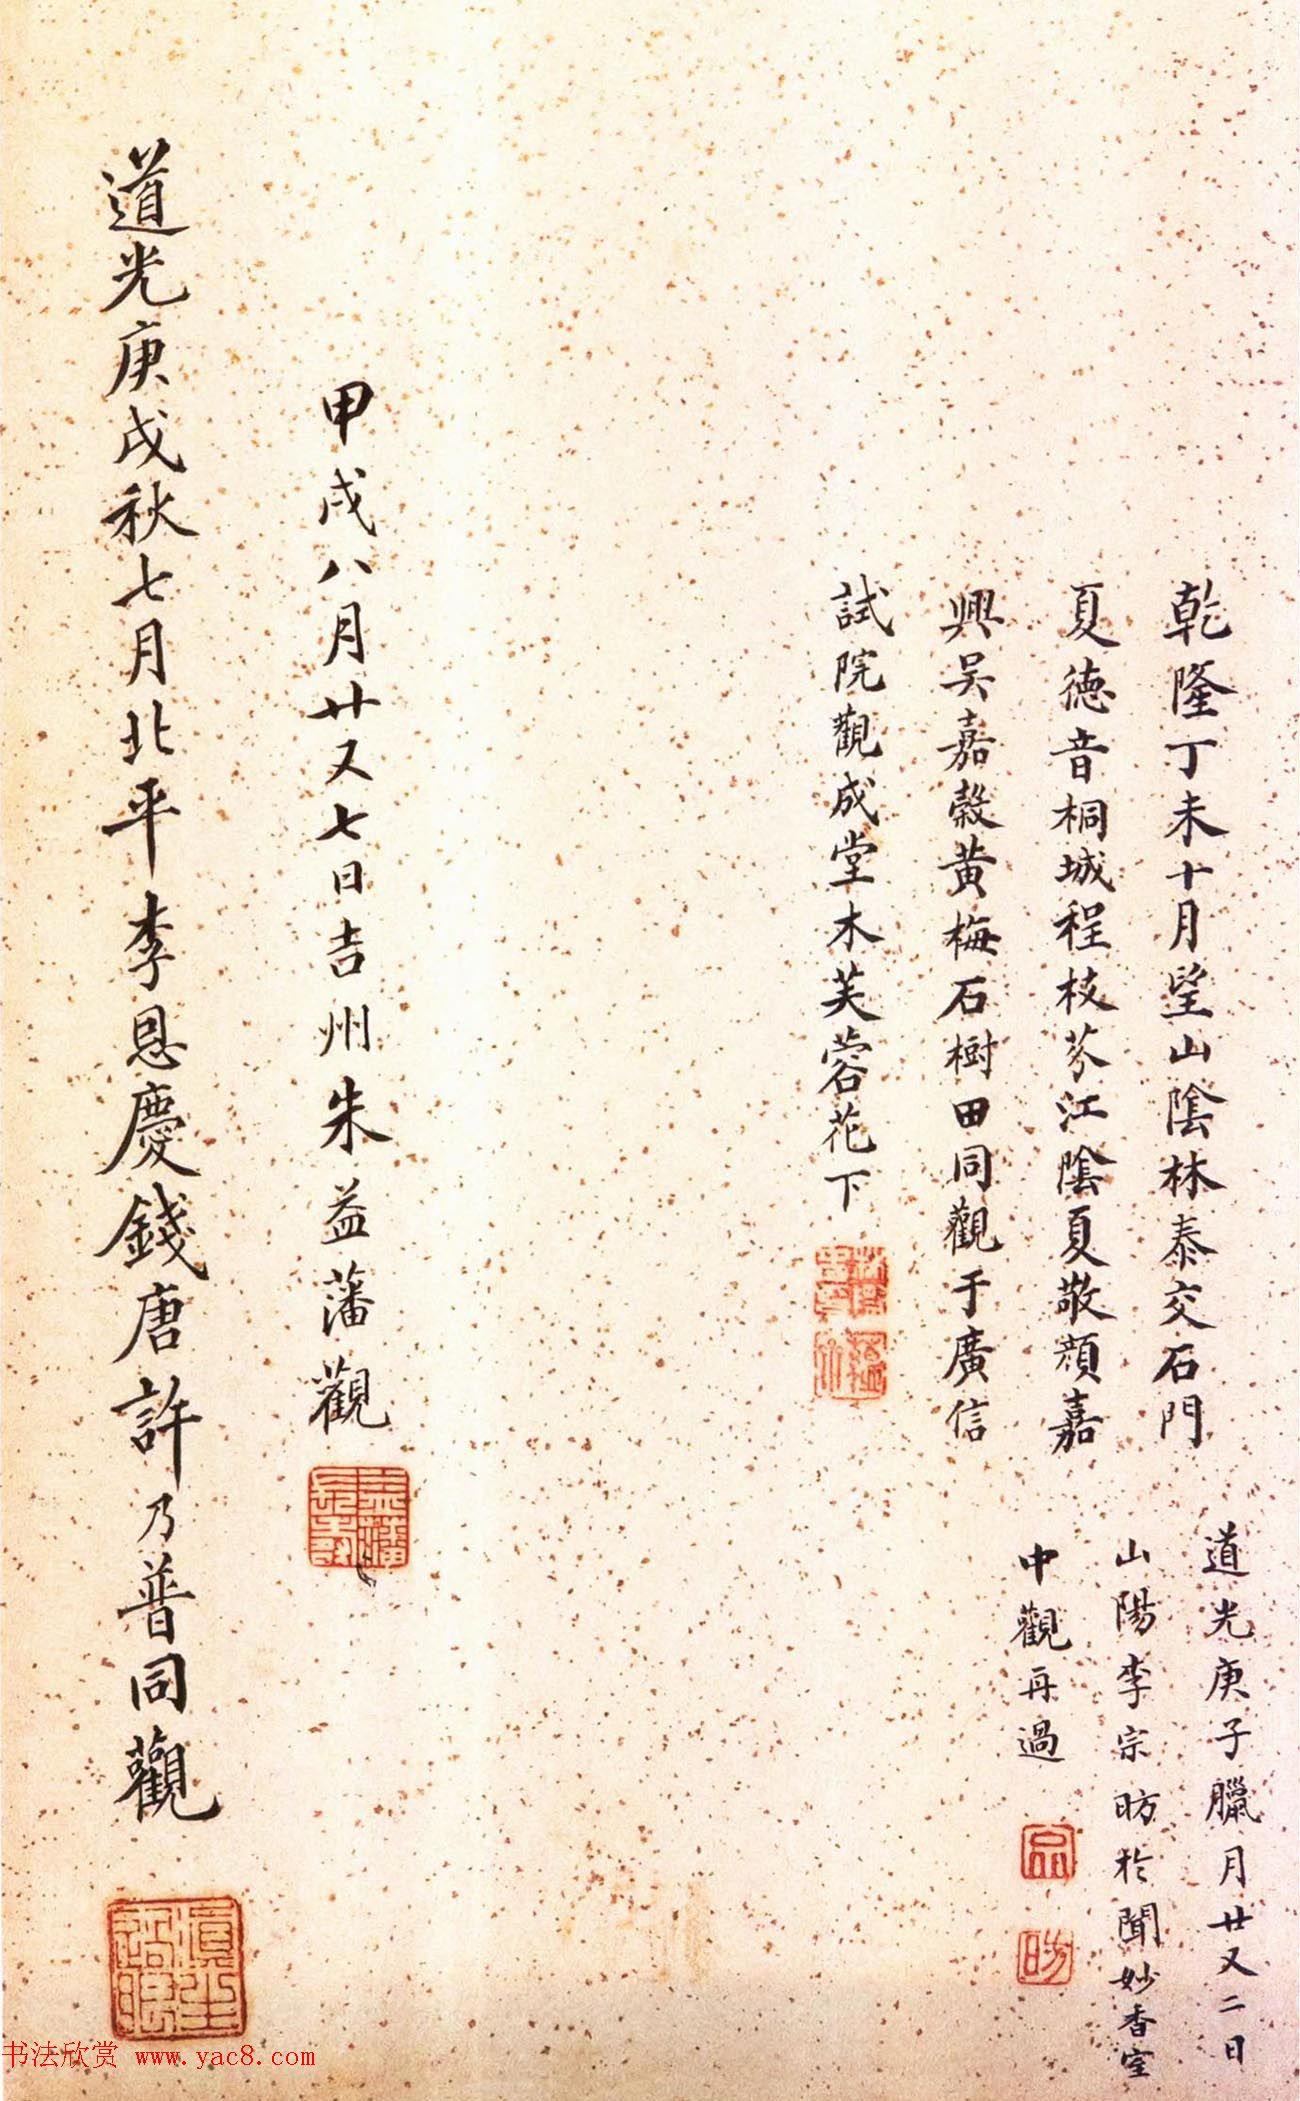 乾隆丁未十月望山陰林泰交石門
夏德音桐城程枝芬江陰夏敬顔嘉
興吴嘉榖黄梅石樹田同觀于廣信
試院觀成堂木芙蓉花下
道光庚子臘月廿又二日
山陽李宗昉於聞妙香室
中觀再過
甲戌八月廿又七日吉州朱益藩觀
道光庚戌秋七月北平李恩慶錢唐許乃普同觀
书法欣赏 www.yac8.com